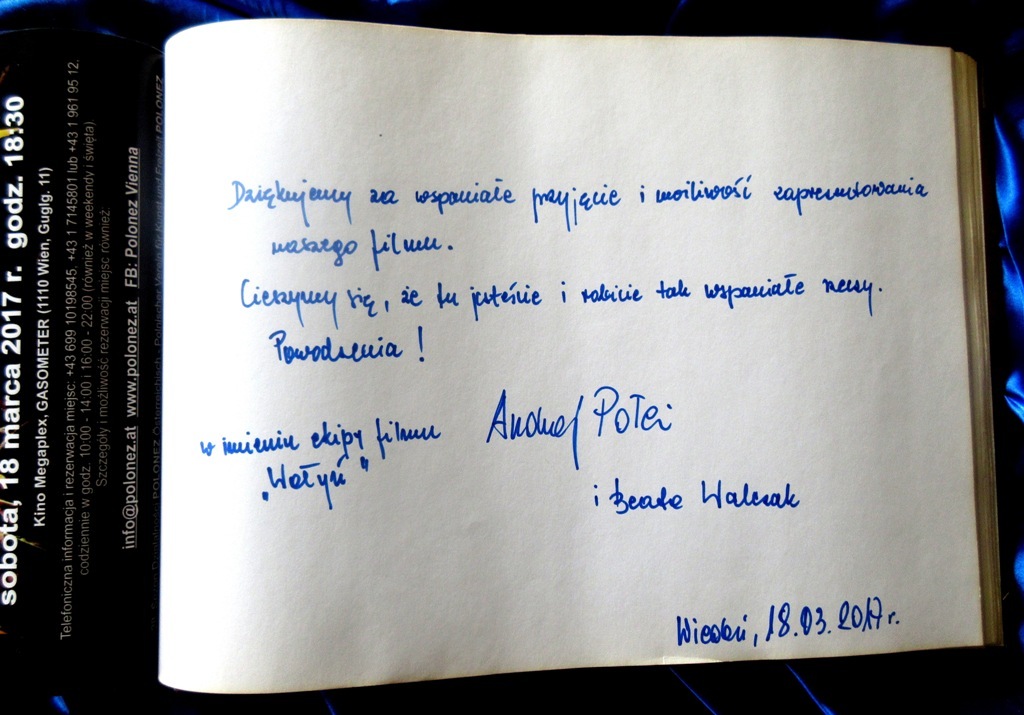 sobota, 18 marca 2017 r. godz. 18:30
Kino Megaplex, GASOMETER (1110 Wien, Guglg. 11)
Telefoniczna informacja i rezerwacja miejsc: +43 699 10198545, +43 1 7145801 lub +43 1 961 95 12.
codziennie w godz. 10:00 - 14:00 i 16:00 - 22:00 (również w weekendy i święta).
Szczegóły i możliwość rezerwacji miejsc również:
info@polonez.at www.polonez.at FB: Polonez Vienna
Dziękujemy za wspaniałe przyjęcie i możliwość zaprezentowania
naszego filmu.
Cieszymy się, że tu jesteście i robicie tak wspaniałe rzeczy.
Powodzenia!
w imieniu ekipy filmu
„Wołyń"
Andrzej Połeć
i Beata Walczak
Wiedeń, 18.03.2017r.